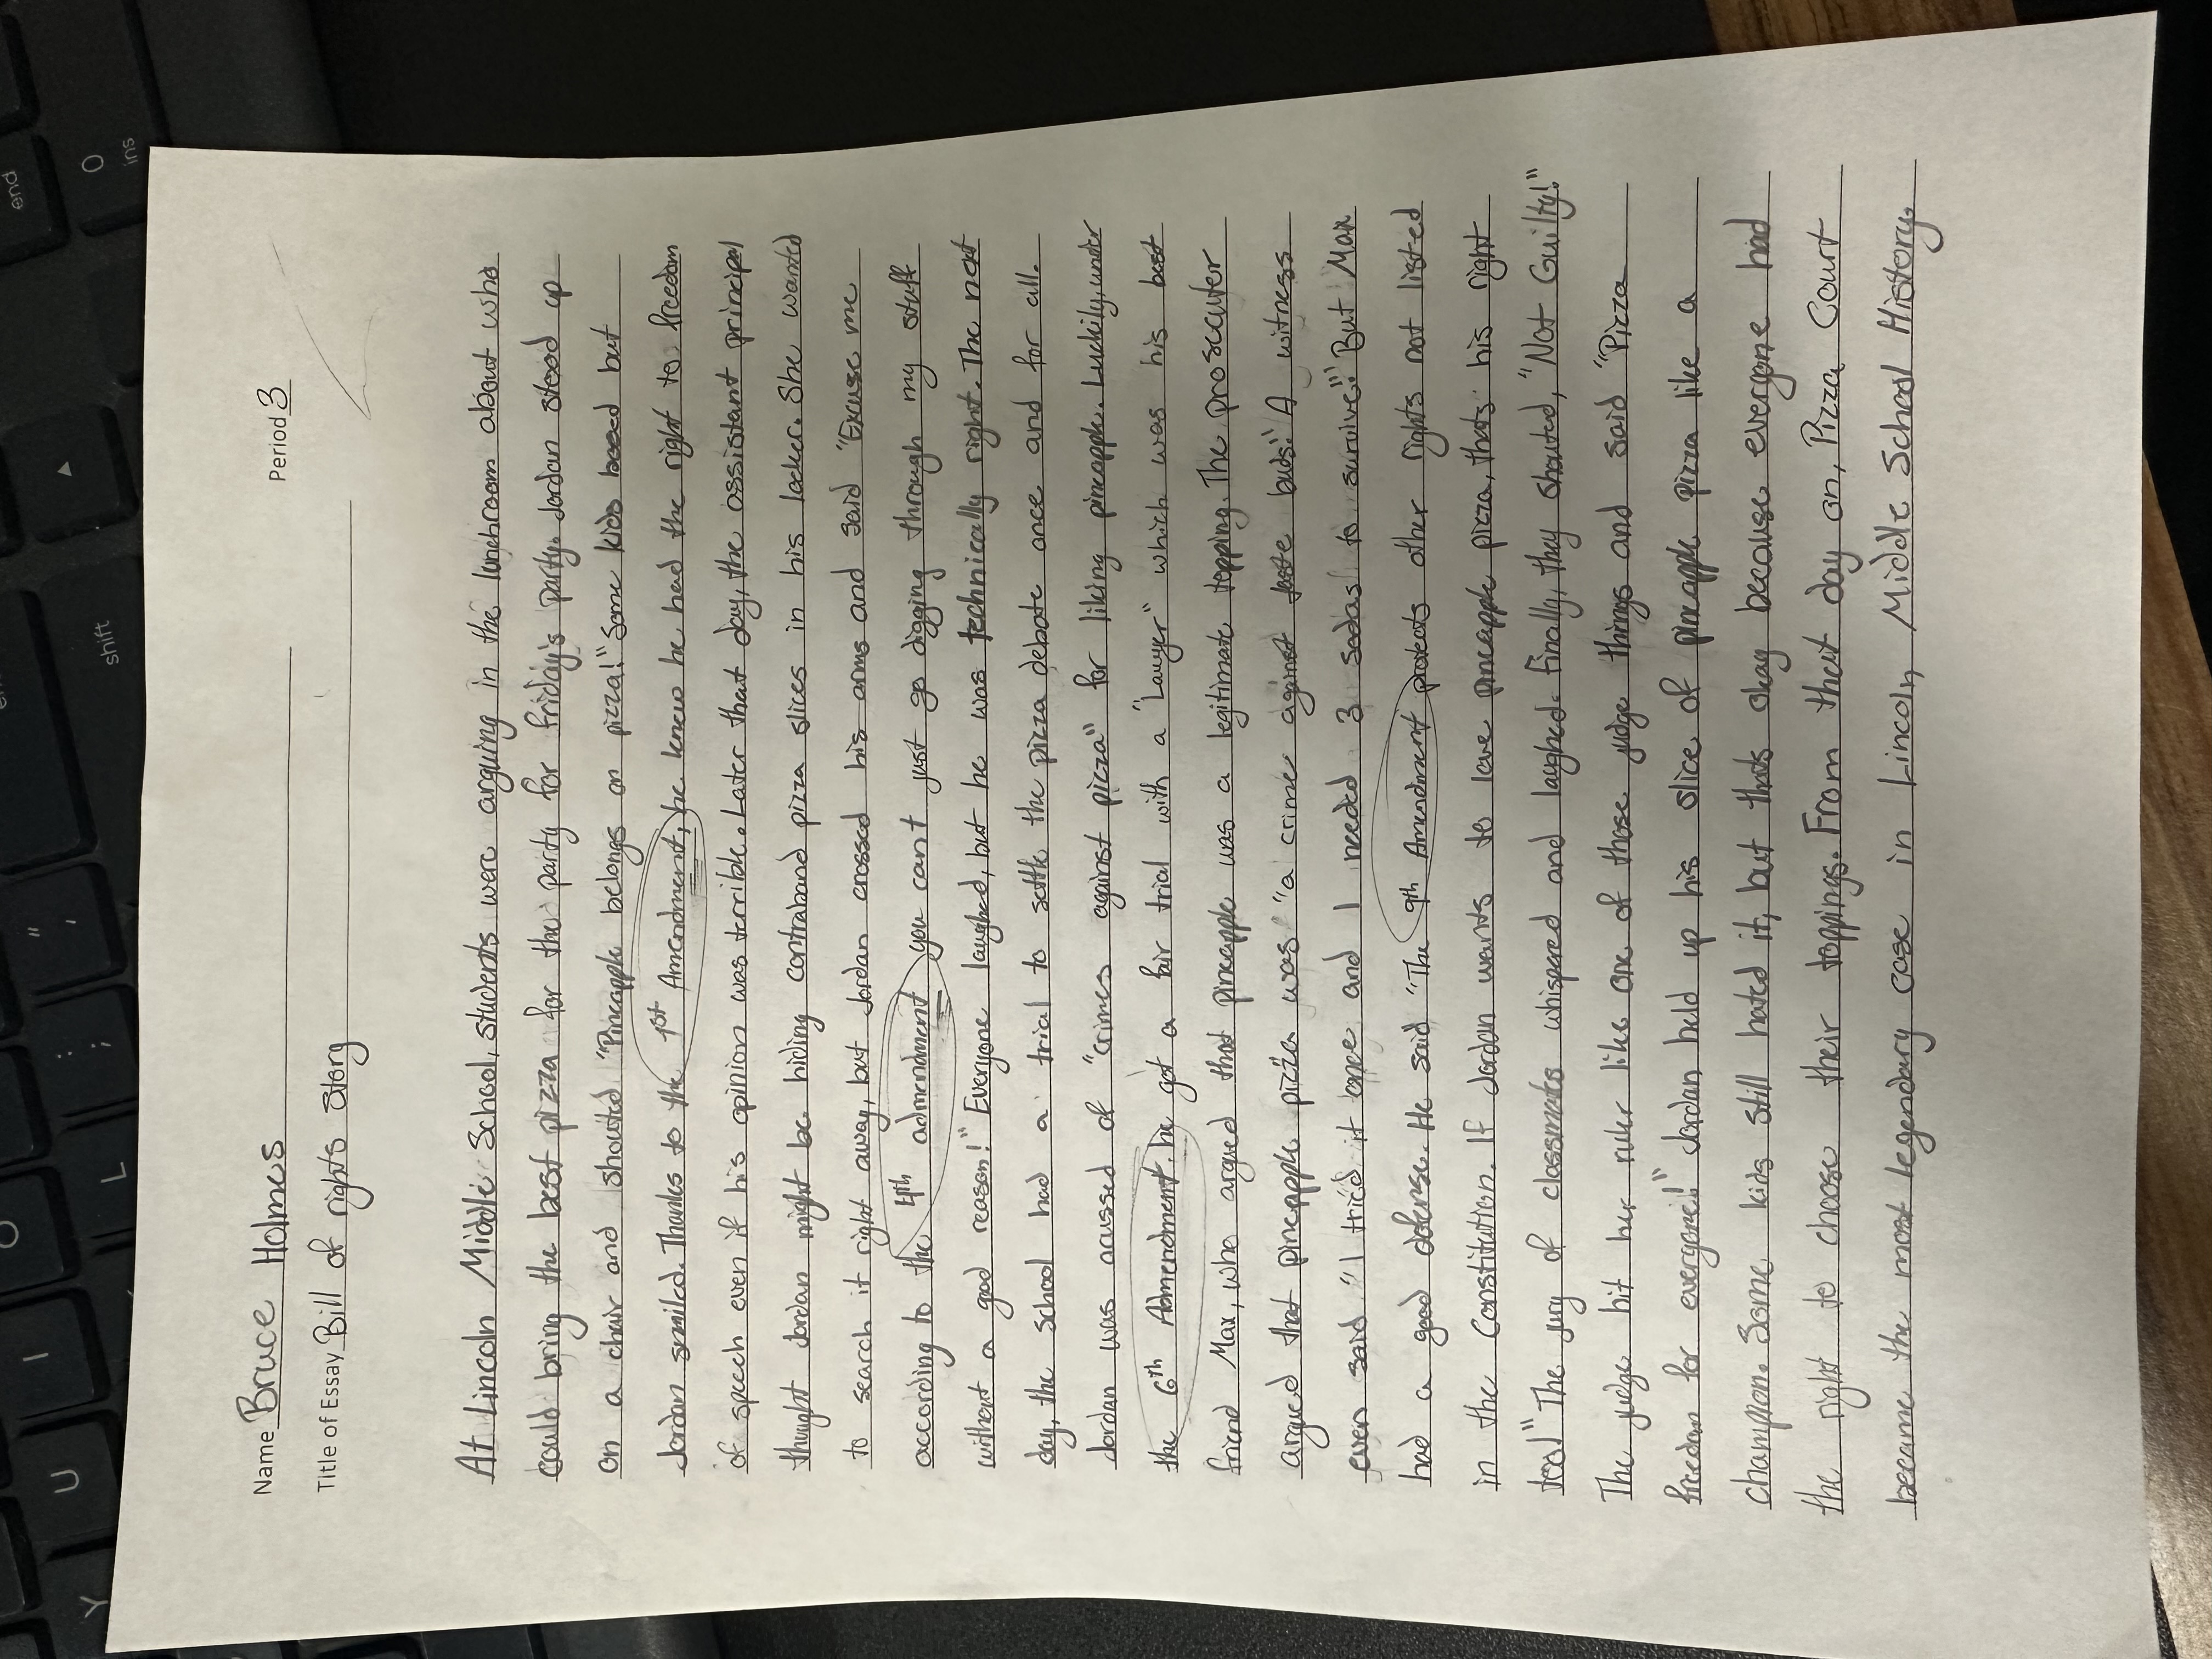 Name Bruce Holmes Period 3
Title of Essay Bill of rights story
At Lincoln Middle School, students were arguing in the lunchroom about who
could bring the best pizza for the party for friday's party. Jordan stood up
on a chair and shouted "Pineapple belongs on pizza!" Some kids booed but
Jordan smiled. Thanks to the 1st Amendment, he knew he had the right to freedom
of speech even if his opinion was terrible. Later that day, the assistant principal
thought Jordan might be hiding contraband pizza slices in his locker. She wanted
to search it right away, but Jordan crossed his arms and said "Excuse me
according to the 4th admendment you cant just go digging through my stuff
without a good reason!" Everyone laughed, but he was technically right. The next
day, the school had a trial to settle the pizza debate once and for all.
Jordan was acussed of "crimes against pizza" for liking pineapple. Luckily, under
the 6th Admendment he got a fair trial with a "Lawyer" which was his best
friend Max, who argued that pineapple was a legitimate topping. The prosecuter
argued that pineapple pizza was "a crime against taste buds." A witness
even said "I tried it once and I needed 3 sodas to survive"! But Max
had a good defense. He said "The 9th Amendment protects other rights not listed
in the Constitution. If Jordan wants to love pineapple pizza, thats his right
too!" The jury of classmates whispered and laughed. finally, they shouted, "Not Guilty!"
The judge hit her ruler like one of those judge things and said "Pizza
freedom for everyone!" Jordan held up his slice of pineapple pizza like a
champion. Some kids still hated it, but thats okay because everyone had
the right to choose their toppings. From that day on, Pizza Court
became the most legendary case in Lincoln Middle School History.
end
O
ins
shift
"
'
:
;
L
I
U
Y